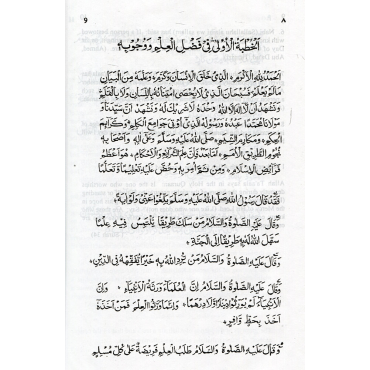 ٨
9
اَلْخُطْبَةُ الْأُوْلٰى فِيْ فَضْلِ الْعِلْمِ وَوُجُوْبِهٖ
اَلْحَمْدُ لِلّٰهِ الْاَكْرَمِ، الَّذِيْ خَلَقَ الْاِنْسَانَ وَكَرَّمَ، وَعَلَّمَهٗ مِنَ الْبَيَانِ
مَا لَمْ يَعْلَمْ، فَسُبْحَانَ الَّذِيْ لَا يُحْصٰى امْتِنَانُهٗ بِاللِّسَانِ وَلَا بِالْقَلَمِ
وَنَشْهَدُ اَنْ لَّا اِلٰهَ اِلَّا اللّٰهُ وَحْدَهٗ لَا شَرِيْكَ لَهٗ وَنَشْهَدُ اَنَّ سَيِّدَنَا وَ
مَوْلَانَا مُحَمَّدًا عَبْدُهٗ وَرَسُوْلُهُ الَّذِيْ اُوْتِيَ جَوَامِعَ الْكَلِمِ، وَكَرَائِمَ
الْحِكَمِ، وَمَكَارِمَ الشِّيَمِ، صَلَّى اللّٰهُ عَلَيْهِ وَسَلَّمَ وَعَلٰى اٰلِهٖ وَاَصْحَابِهٖ
نُجُوْمِ الطَّرِيْقِ الْاَمَمِ، اَمَّا بَعْدُ فَاِنَّ عِلْمَ الشَّرَائِعِ وَالْاَحْكَامِ، هُوَ اَعْظَمُ
فَرَائِضِ الْاِسْلَامِ، وَمِنْ ثَمَّ اُمِرَ بِهٖ وَحُضَّ عَلَيْهِ تَعْلِيْمًا وَّتَعَلُّمًا
فَقَدْ قَالَ رَسُوْلُ اللّٰهِ صَلَّى اللّٰهُ عَلَيْهِ وَسَلَّمَ بَلِّغُوْا عَنِّيْ وَلَوْ اٰيَةً،
وَقَالَ عَلَيْهِ الصَّلٰوةُ وَالسَّلَامُ مَنْ سَلَكَ طَرِيْقًا يَلْتَمِسُ فِيْهِ عِلْمًا
سَهَّلَ اللّٰهُ لَهٗ بِهٖ طَرِيْقًا اِلَى الْجَنَّةِ،
وَقَالَ عَلَيْهِ الصَّلٰوةُ وَالسَّلَامُ مَنْ يُّرِدِ اللّٰهُ بِهٖ خَيْرًا يُّفَقِّهْهُ فِي الدِّيْنِ،
وَقَالَ عَلَيْهِ الصَّلٰوةُ وَالسَّلَامُ اِنَّ الْعُلَمَاءَ وَرَثَةُ الْاَنْبِيَاءِ، وَاِنَّ
الْاَنْبِيَاءَ لَمْ يُوَرِّثُوْا دِيْنَارًا وَّلَا دِرْهَمًا، وَاِنَّمَا وَرَّثُوا الْعِلْمَ فَمَنْ اَخَذَهٗ
اَخَذَ بِحَظٍّ وَّافِرٍ،
وَقَالَ عَلَيْهِ الصَّلٰوةُ وَالسَّلَامُ طَلَبُ الْعِلْمِ فَرِيْضَةٌ عَلٰى كُلِّ مُسْلِمٍ